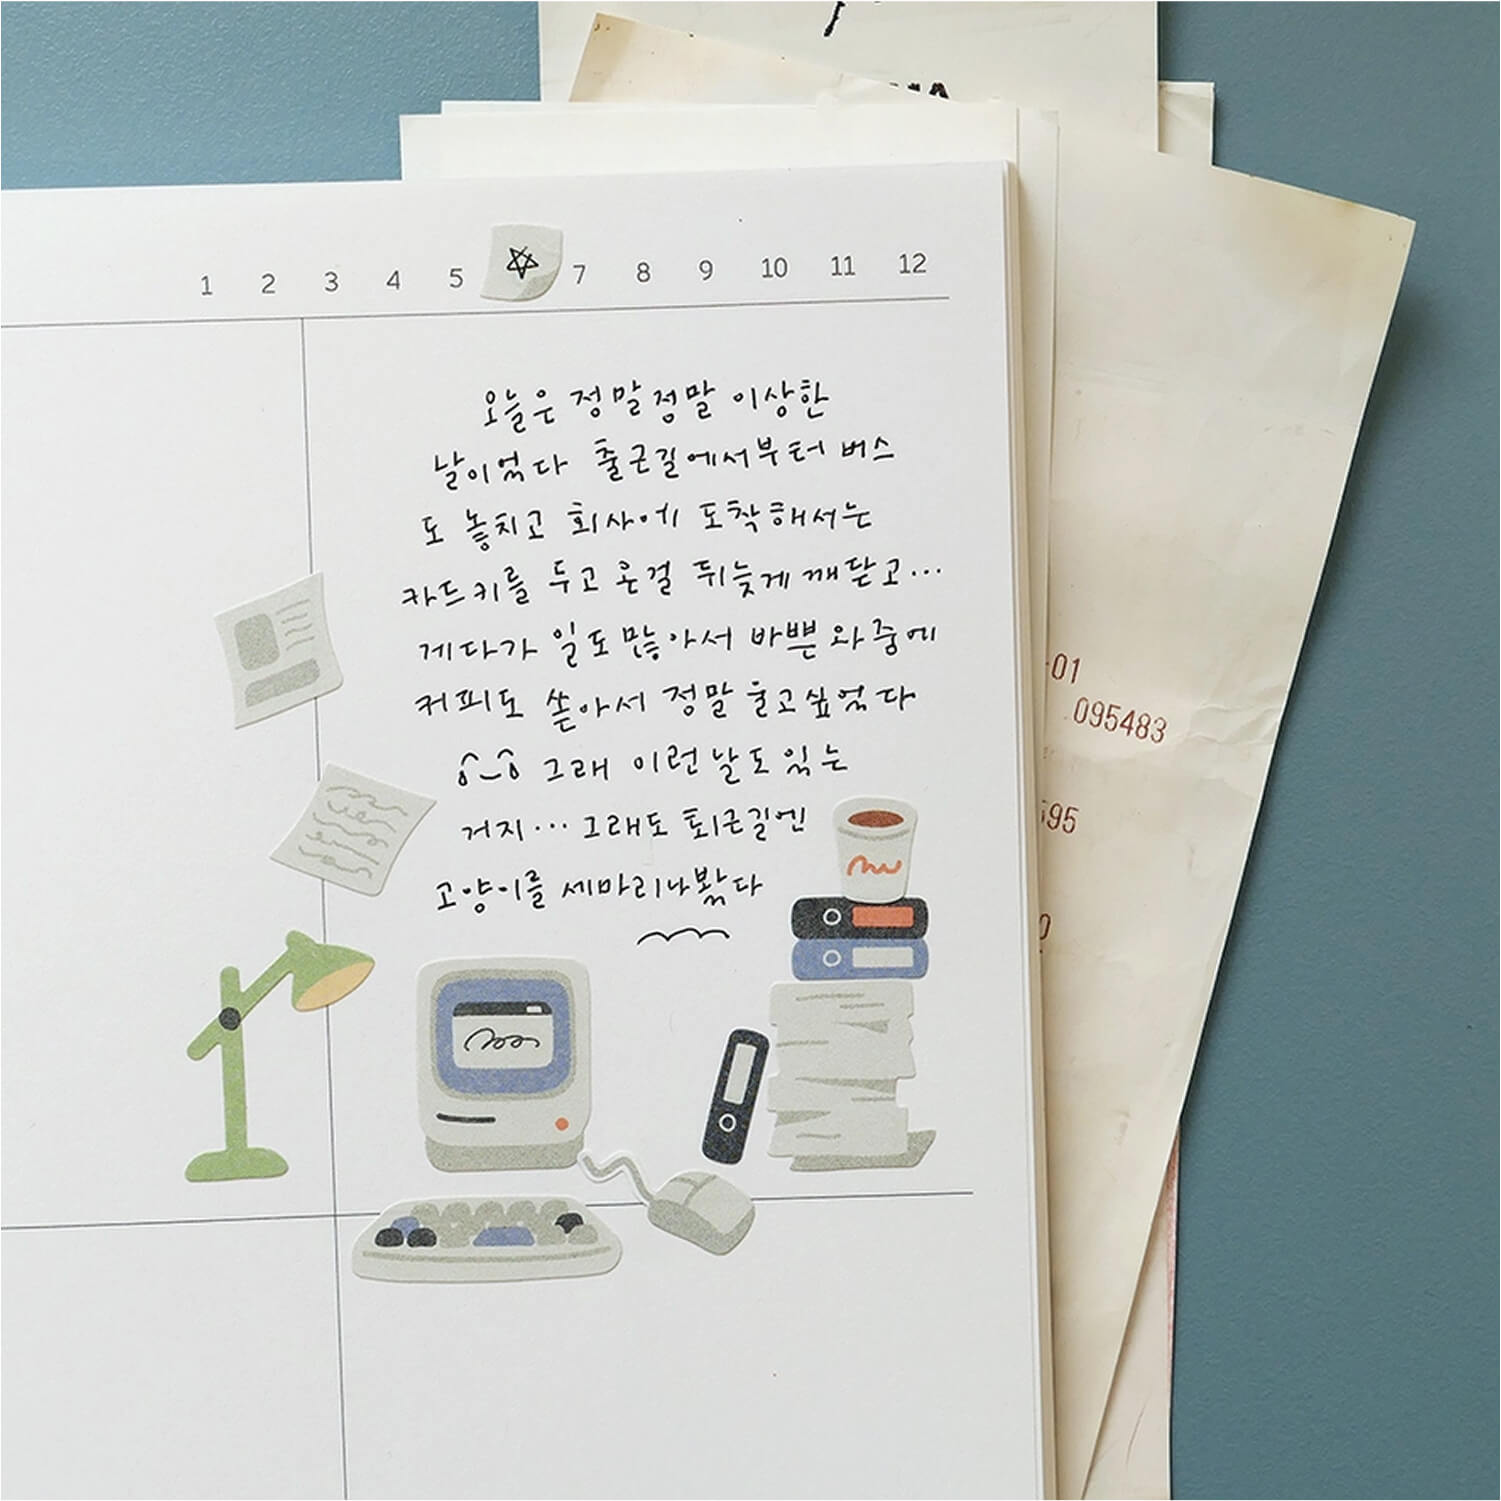 1 2 3 4 5 7 8 9 10 11 12
오늘은 정말정말 이상한
날이었다 출근길에서부터 버스
도 놓치고 회사에 도착해서는
카드키를 두고 온걸 뒤늦게 깨닫고...
게다가 일도 많아서 바쁜 와중에
커피도 쏟아서 정말 울고싶었다
그래 이런날도 있는
거지... 그래도 퇴근길엔
고양이를 세마리나봤다
-01
095483
595
0